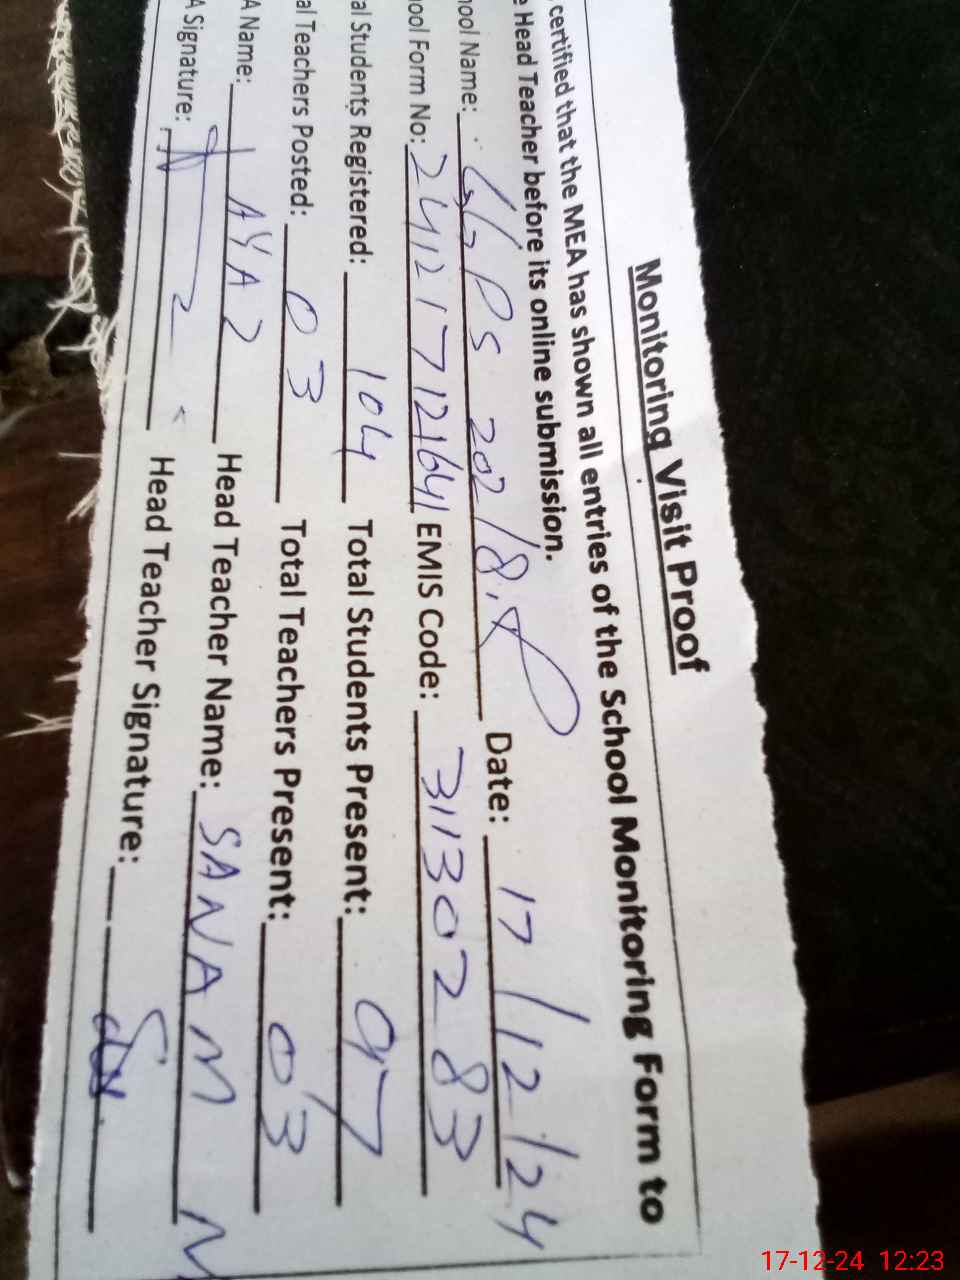 Monitoring Visit Proof
certified that the MEA has shown all entries of the School Monitoring Form to
e Head Teacher before its online submission.
hool Name: GGPS 202/8.R Date: 17/12/24
hool Form No: 24121712164 EMIS Code: 31130283
al Students Registered: 104 Total Students Present: 97
al Teachers Posted: 03 Total Teachers Present: 03
A Name: AYAZ Head Teacher Name: SANAM N
A Signature: Head Teacher Signature:
17-12-24 12:23